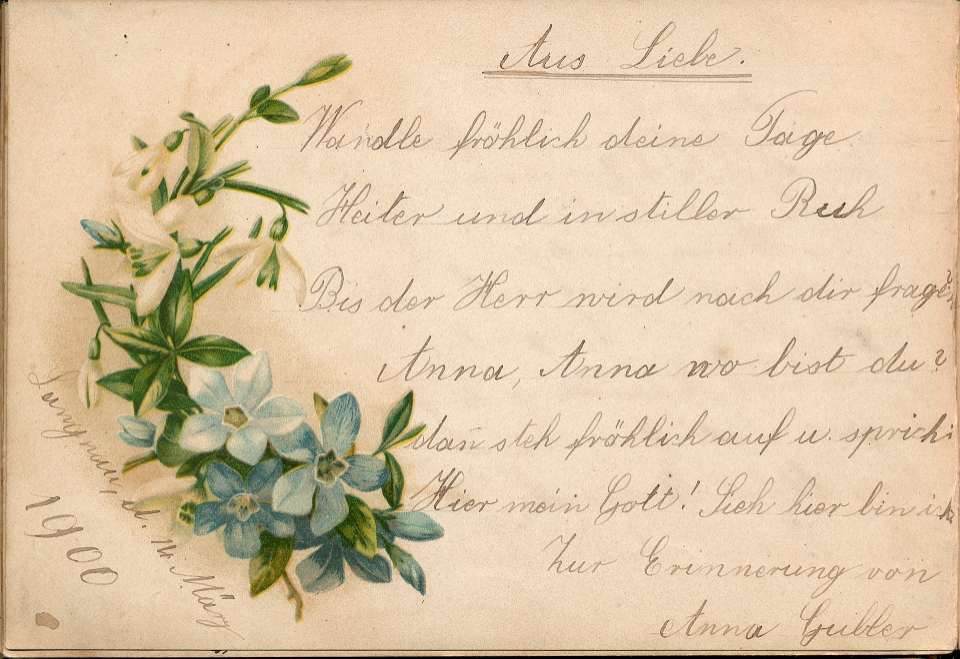 Aus Liebe.
Wandle fröhlich deine Tage
Heiter und in stiller Ruh
Bis der Herr wird nach dir frage
Anna, Anna wo bist du?
dan̄ steh fröhlich auf u. sprich
Hier mein Gott! Sieh hier bin ich
Zur Erinnerung von
Anna Gubler
d. 14. März
1900